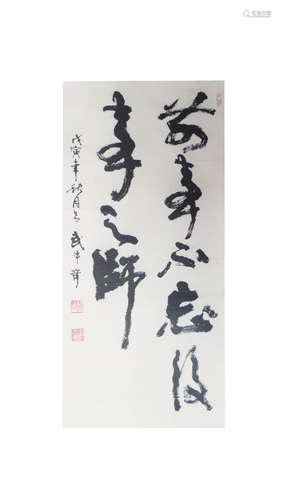 前事不忘後
事之師
戊寅年秋月 武中奇